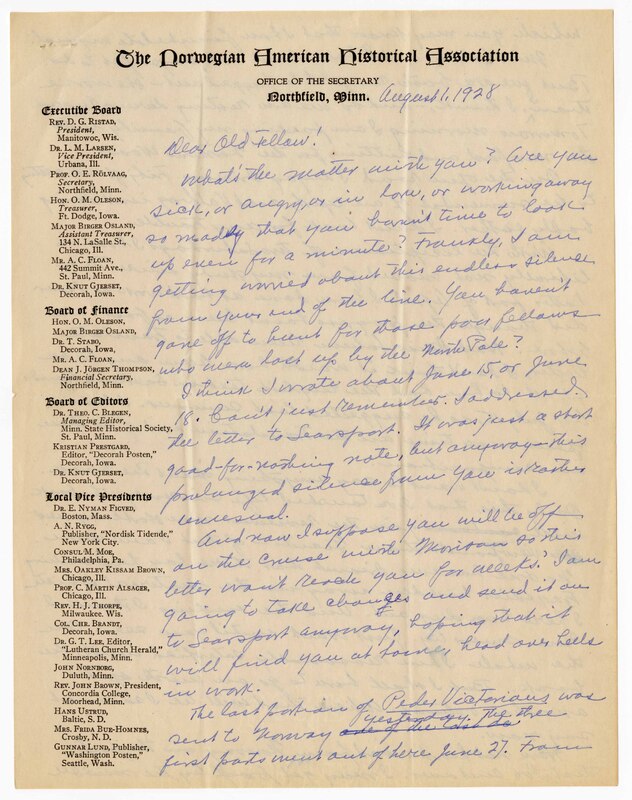 The Norwegian American Historical Association
OFFICE OF THE SECRETARY
Northfield, Minn.
August 1, 1928
Executive Board
REV. D. G. RISTAD,
President,
Manitowoc, Wis.
DR. L. M. LARSEN,
Vice President,
Urbana, Ill.
PROF. O. E. RÖLVAAG,
Secretary,
Northfield, Minn.
HON. O. M. OLESON,
Treasurer,
Ft. Dodge, Iowa.
MAJOR BIRGER OSLAND,
Assistant Treasurer,
134 N. LaSalle St.,
Chicago, Ill.
MR. A. C. FLOAN,
442 Summit Ave.,
St. Paul, Minn.
DR. KNUT GJERSET,
Decorah, Iowa.
Board of Finance
HON. O. M. OLESON,
MAJOR BIRGER OSLAND,
DR. T. STABO,
Decorah, Iowa.
MR. A. C. FLOAN,
DEAN J. JÖRGEN THOMPSON,
Financial Secretary,
Northfield, Minn.
Board of Editors
DR. THEO. C. BLEGEN,
Managing Editor,
Minn. State Historical Society,
St. Paul, Minn.
KRISTIAN PRESTGARD,
Editor, "Decorah Posten,"
Decorah, Iowa.
DR. KNUT GJERSET,
Decorah, Iowa.
Local Vice Presidents
DR. E. NYMAN FIGVED,
Boston, Mass.
A. N. RYGG,
Publisher, "Nordisk Tidende,"
New York City.
CONSUL M. MOE,
Philadelphia, Pa.
MRS. OAKLEY KISSAM BROWN,
Chicago, Ill.
PROF. C. MARTIN ALSAGER,
Chicago, Ill.
REV. H. J. THORPE,
Milwaukee, Wis.
COL. CHR. BRANDT,
Decorah, Iowa.
DR. G. T. LEE, Editor,
"Lutheran Church Herald,"
Minneapolis, Minn.
JOHN NORNBORG,
Duluth, Minn.
REV. JOHN BROWN, President,
Concordia College,
Moorhead, Minn.
HANS USTRUD,
Baltic, S. D.
MRS. FRIDA BUE-HOMNES,
Crosby, N. D.
GUNNAR LUND, Publisher,
"Washington Posten,"
Seattle, Wash.
Dear Old Fellow!
What's the matter with you? Are you
sick, or angry, or in love, or working away
so madly that you haven't time to look
up even for a minute? Frankly, I am
getting worried about this endless silence
from your end of the line. You haven't
gone off to hunt for those poor fellows
who were lost up by the North Pole?
I think I wrote about June 15, or June
18. Can't just remember. I addressed
the letter to Searsport. It was just a short
good-for-nothing note, but anyway—this
prolonged silence from you is rather
unusual.
And now I suppose you will be off
on the cruise with Morison so this
letter won't reach you for weeks! I am
going to take changes and send it on
to Searsport anyway, hoping that it
will find you at home, head over heels
in work.
The last portion of Peder Victorious was
sent to Norway one of the last da yesterday. The three
first parts went out of here June 27. From